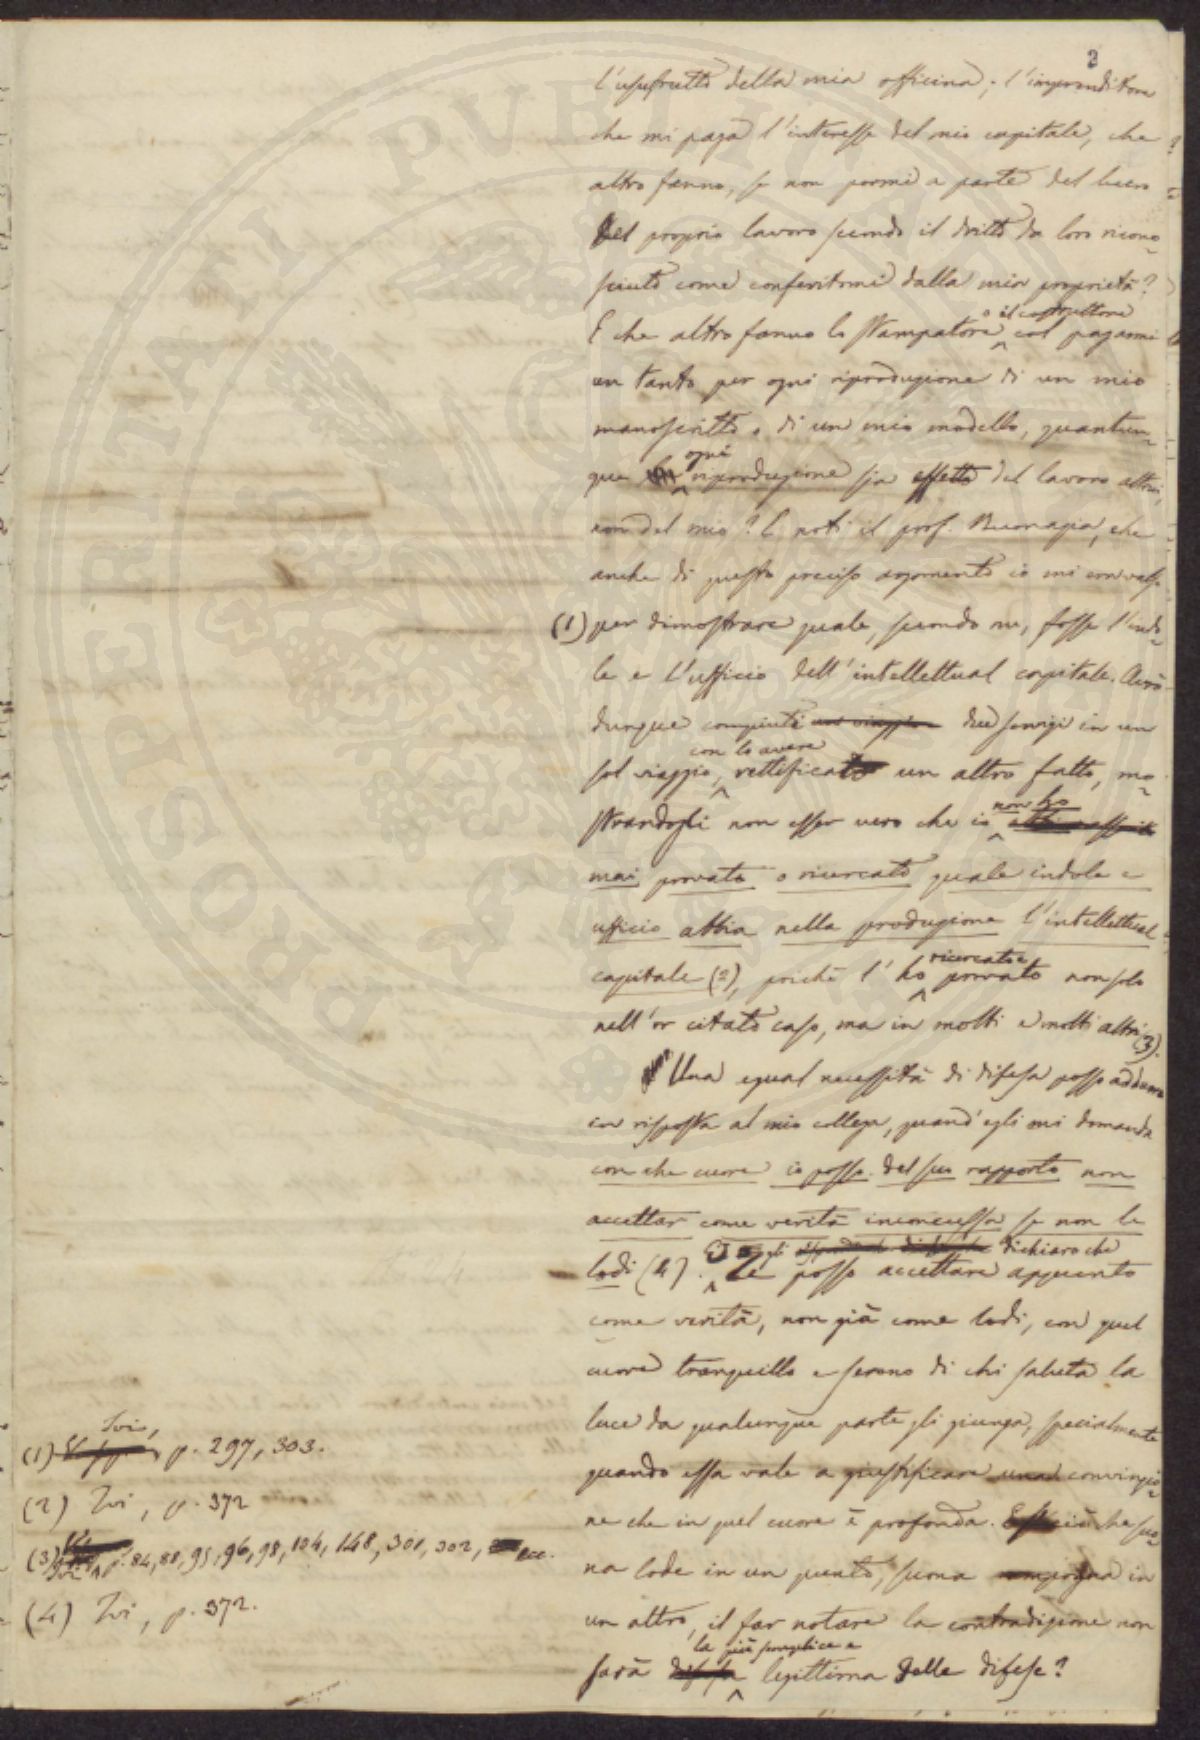 3
l'usufrutto della mia officina; l'imprenditore
che mi paga l'interesse del mio capitale, che
altro fanno, se non pormi a parte del lucro
del proprio lavoro secondo il dritto da loro ricono-
sciuto come conferitomi dalla mia proprietà?
E che altro fanno lo stampatore o il costruttore col pagarmi
un tanto per ogni riproduzione di un mio
manoscritto o di un mio modello, quantun-
que ogni riproduzione sia effetto del lavoro altrui,
non del mio? E noti il prof. che
anche di questo preciso argomento io mi con valsi
(1) per dimostrare quale, secondo me, fosse l'indo-
le e l'ufficio dell'intellettual capitale. Avrò
dunque compiuti due servigi in un
sol viaggio, con lo avere rettificato un altro fatto, mo-
strandogli non esser vero che io non ho
mai provato o ricercato quale indole e
ufficio abbia nella produzione l'intellettual
capitale (2), poichè l'ho ricercato e provato non solo
nell'or citato caso, ma in molti e molti altri (3).
Una egual necessità di difesa posso addurre
in risposta al mio collega, quand'egli mi domanda
con che cuore io posso del suo rapporto non
accettar come verità inconcussa se non le
lodi (4). Ed egli dichiaro che Le posso accettare appunto
come verità, non già come lodi, con quel
cuore tranquillo e sereno di chi saluta la
luce da qualunque parte gli giunga, specialmente
quando essa vale a giustificare una convinzio-
ne che in quel cuore è profonda. E se ciò che suo-
na lode in un punto, suona rampogna in
un altro, il far notare la contradizione non
sarà la più semplice e legittima delle difese?
(1) Ivi, p. 297, 303.
(2) Ivi, p. 372
(3) Ivi, p. 84, 88, 95, 96, 98, 104, 148, 301, 302, ecc.
(4) Ivi, p. 372.
PROSPERITATI PVBLICAE